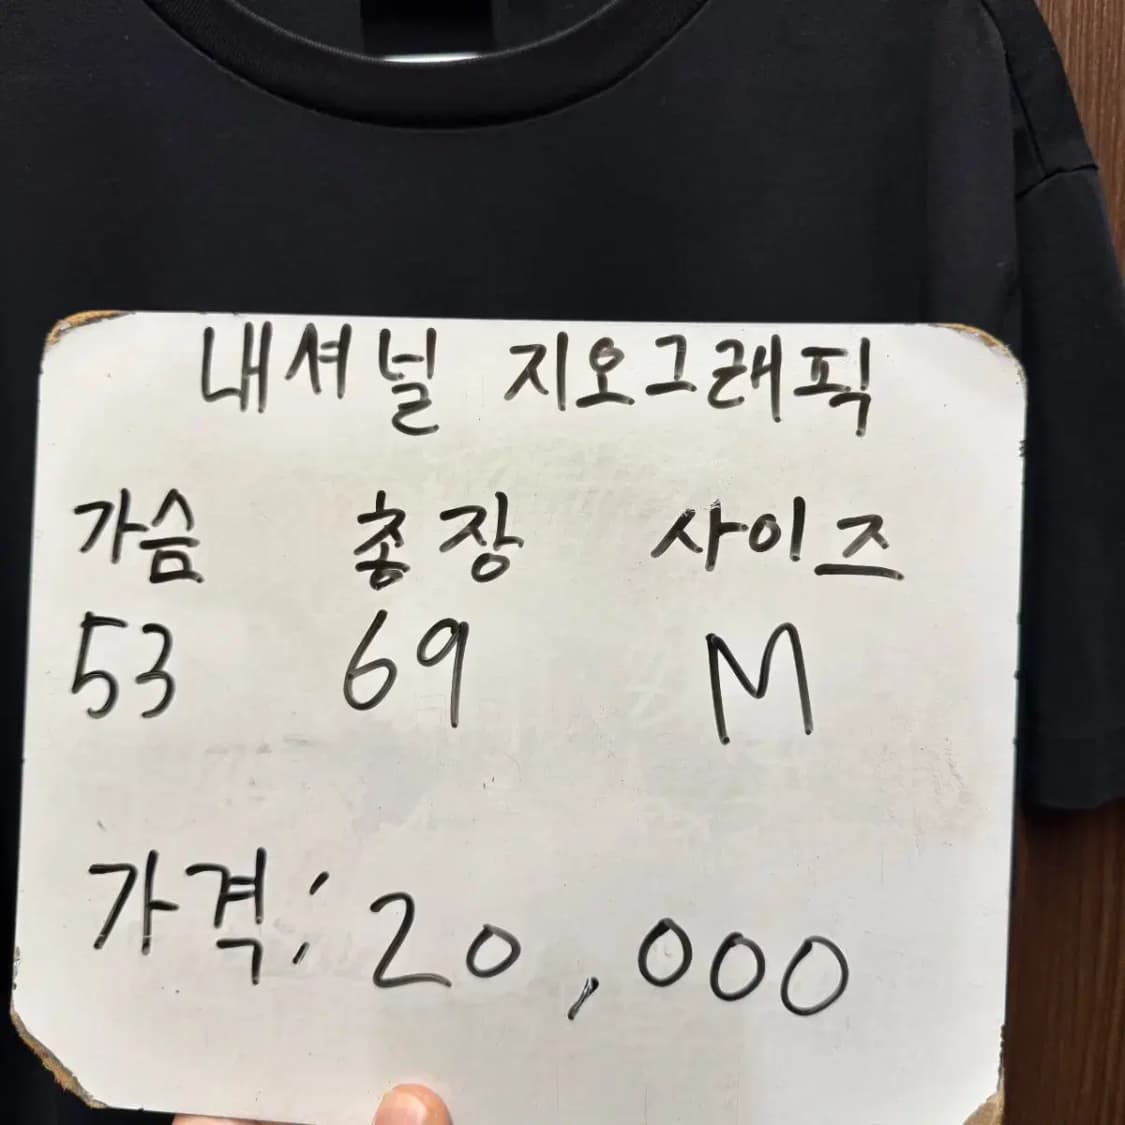 내셔널 지오그래픽
가슴 총장 사이즈
53 69 M
가격: 20,000